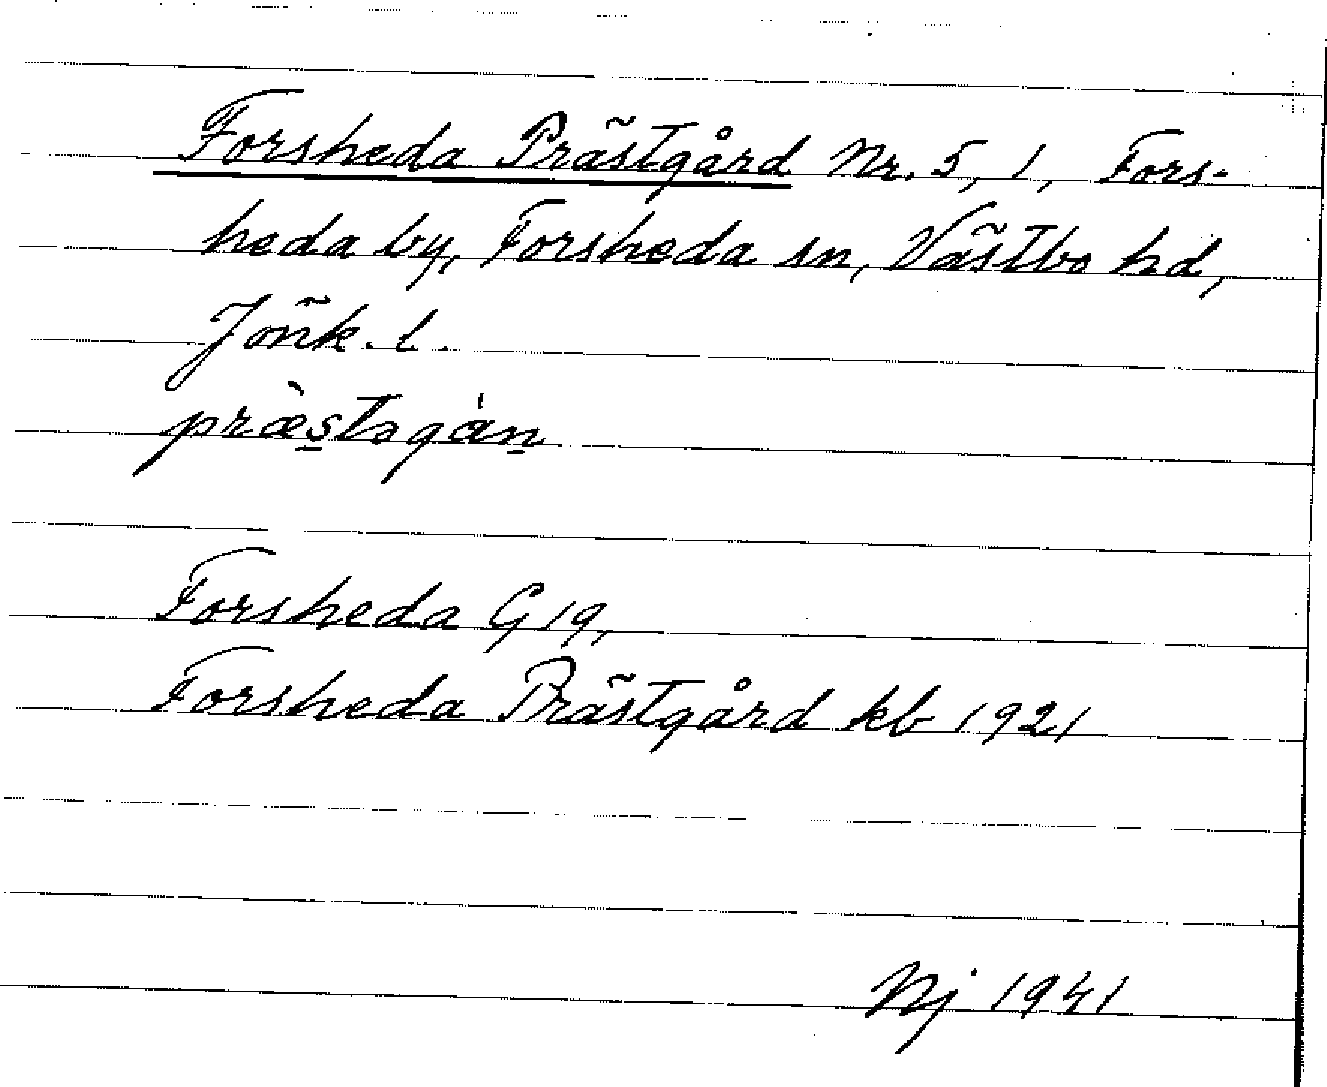 Forsheda Prästgård Nr. 5, 1, Fors-
heda by, Forsheda sn, Västbo hd,
Jönk. l.
præ̀s̲tsgán̲
Forsheda G 19,
Forsheda Prästgård kb 1921
Nj 1941